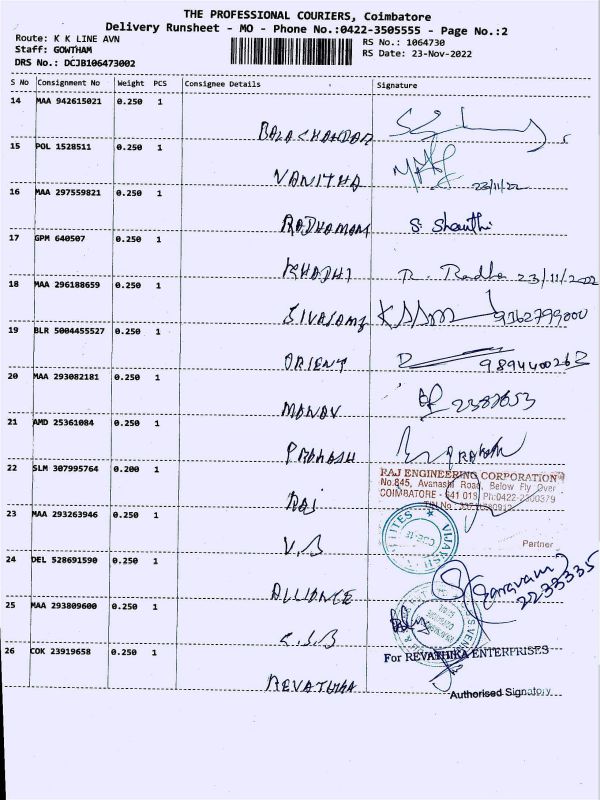 THE PROFESSIONAL COURIERS, Coimbatore
Delivery Runsheet - MO - Phone No.:0422-3505555 - Page No.:2
Route: K K LINE AVN
RS No.: 1064730
Staff: GOWTHAM
RS Date: 23-Nov-2022
DRS No.: DCJB106473002
S No Consignment No Weight PCS Consignee Details Signature
14 MAA 942615021 0.250 1
BALACHANDAR
15 POL 1528511 0.250 1
VANITHA 23/11/22
16 MAA 297559821 0.250 1
RADHAMANI S. Shanthi
17 GPM 640507 0.250 1
KHADHI R. Radha 23/11/2022
18 MAA 296188659 0.250 1
SIVASAMY 9362799000
19 BLR 5004455527 0.250 1
ORIENT 9894400263
20 MAA 293082181 0.250 1
MANAV 2387653
21 AMD 25361084 0.250 1
PRAKASH PRAKASH
22 SLM 307995764 0.200 1
RAJ ENGINEERING CORPORATION
No.845, Avanashi Road, Below Fly Over
COIMBATORE - 641 018, Ph:0422-2300379
RAJ
23 MAA 293263946 0.250 1
V.B Partner
24 DEL 528691590 0.250 1
ALLIANCE Saravanan
2233335
25 MAA 293809600 0.250 1
C.S.B
26 COK 23919658 0.250 1
For REVATHIKA ENTERPRISES
REVATHIKA
Authorised Signatory